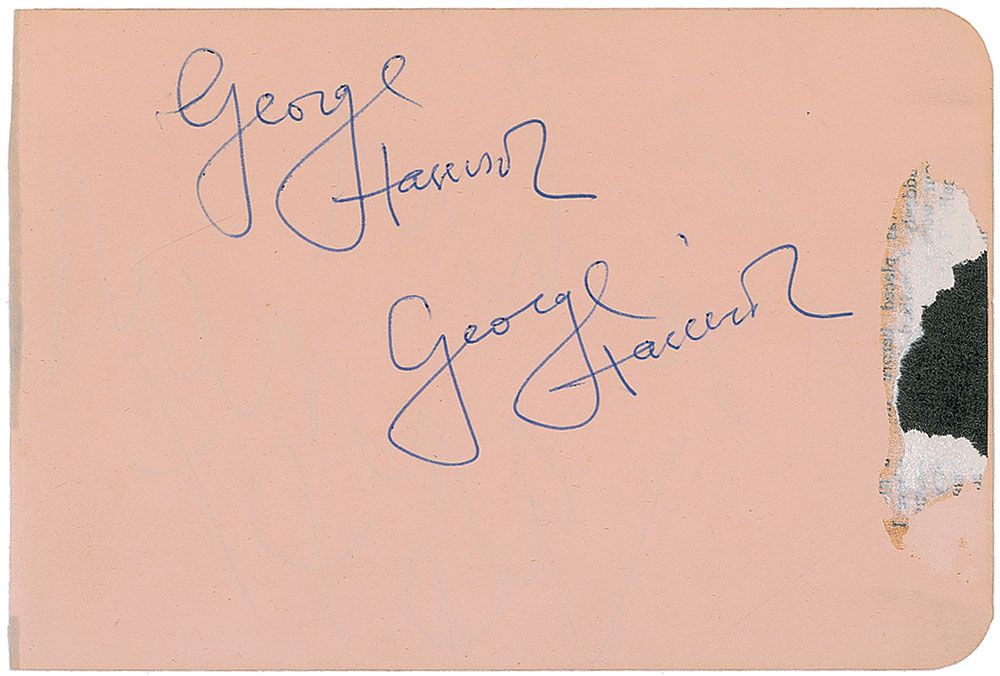 George
Harrison
George
Harrison
placed